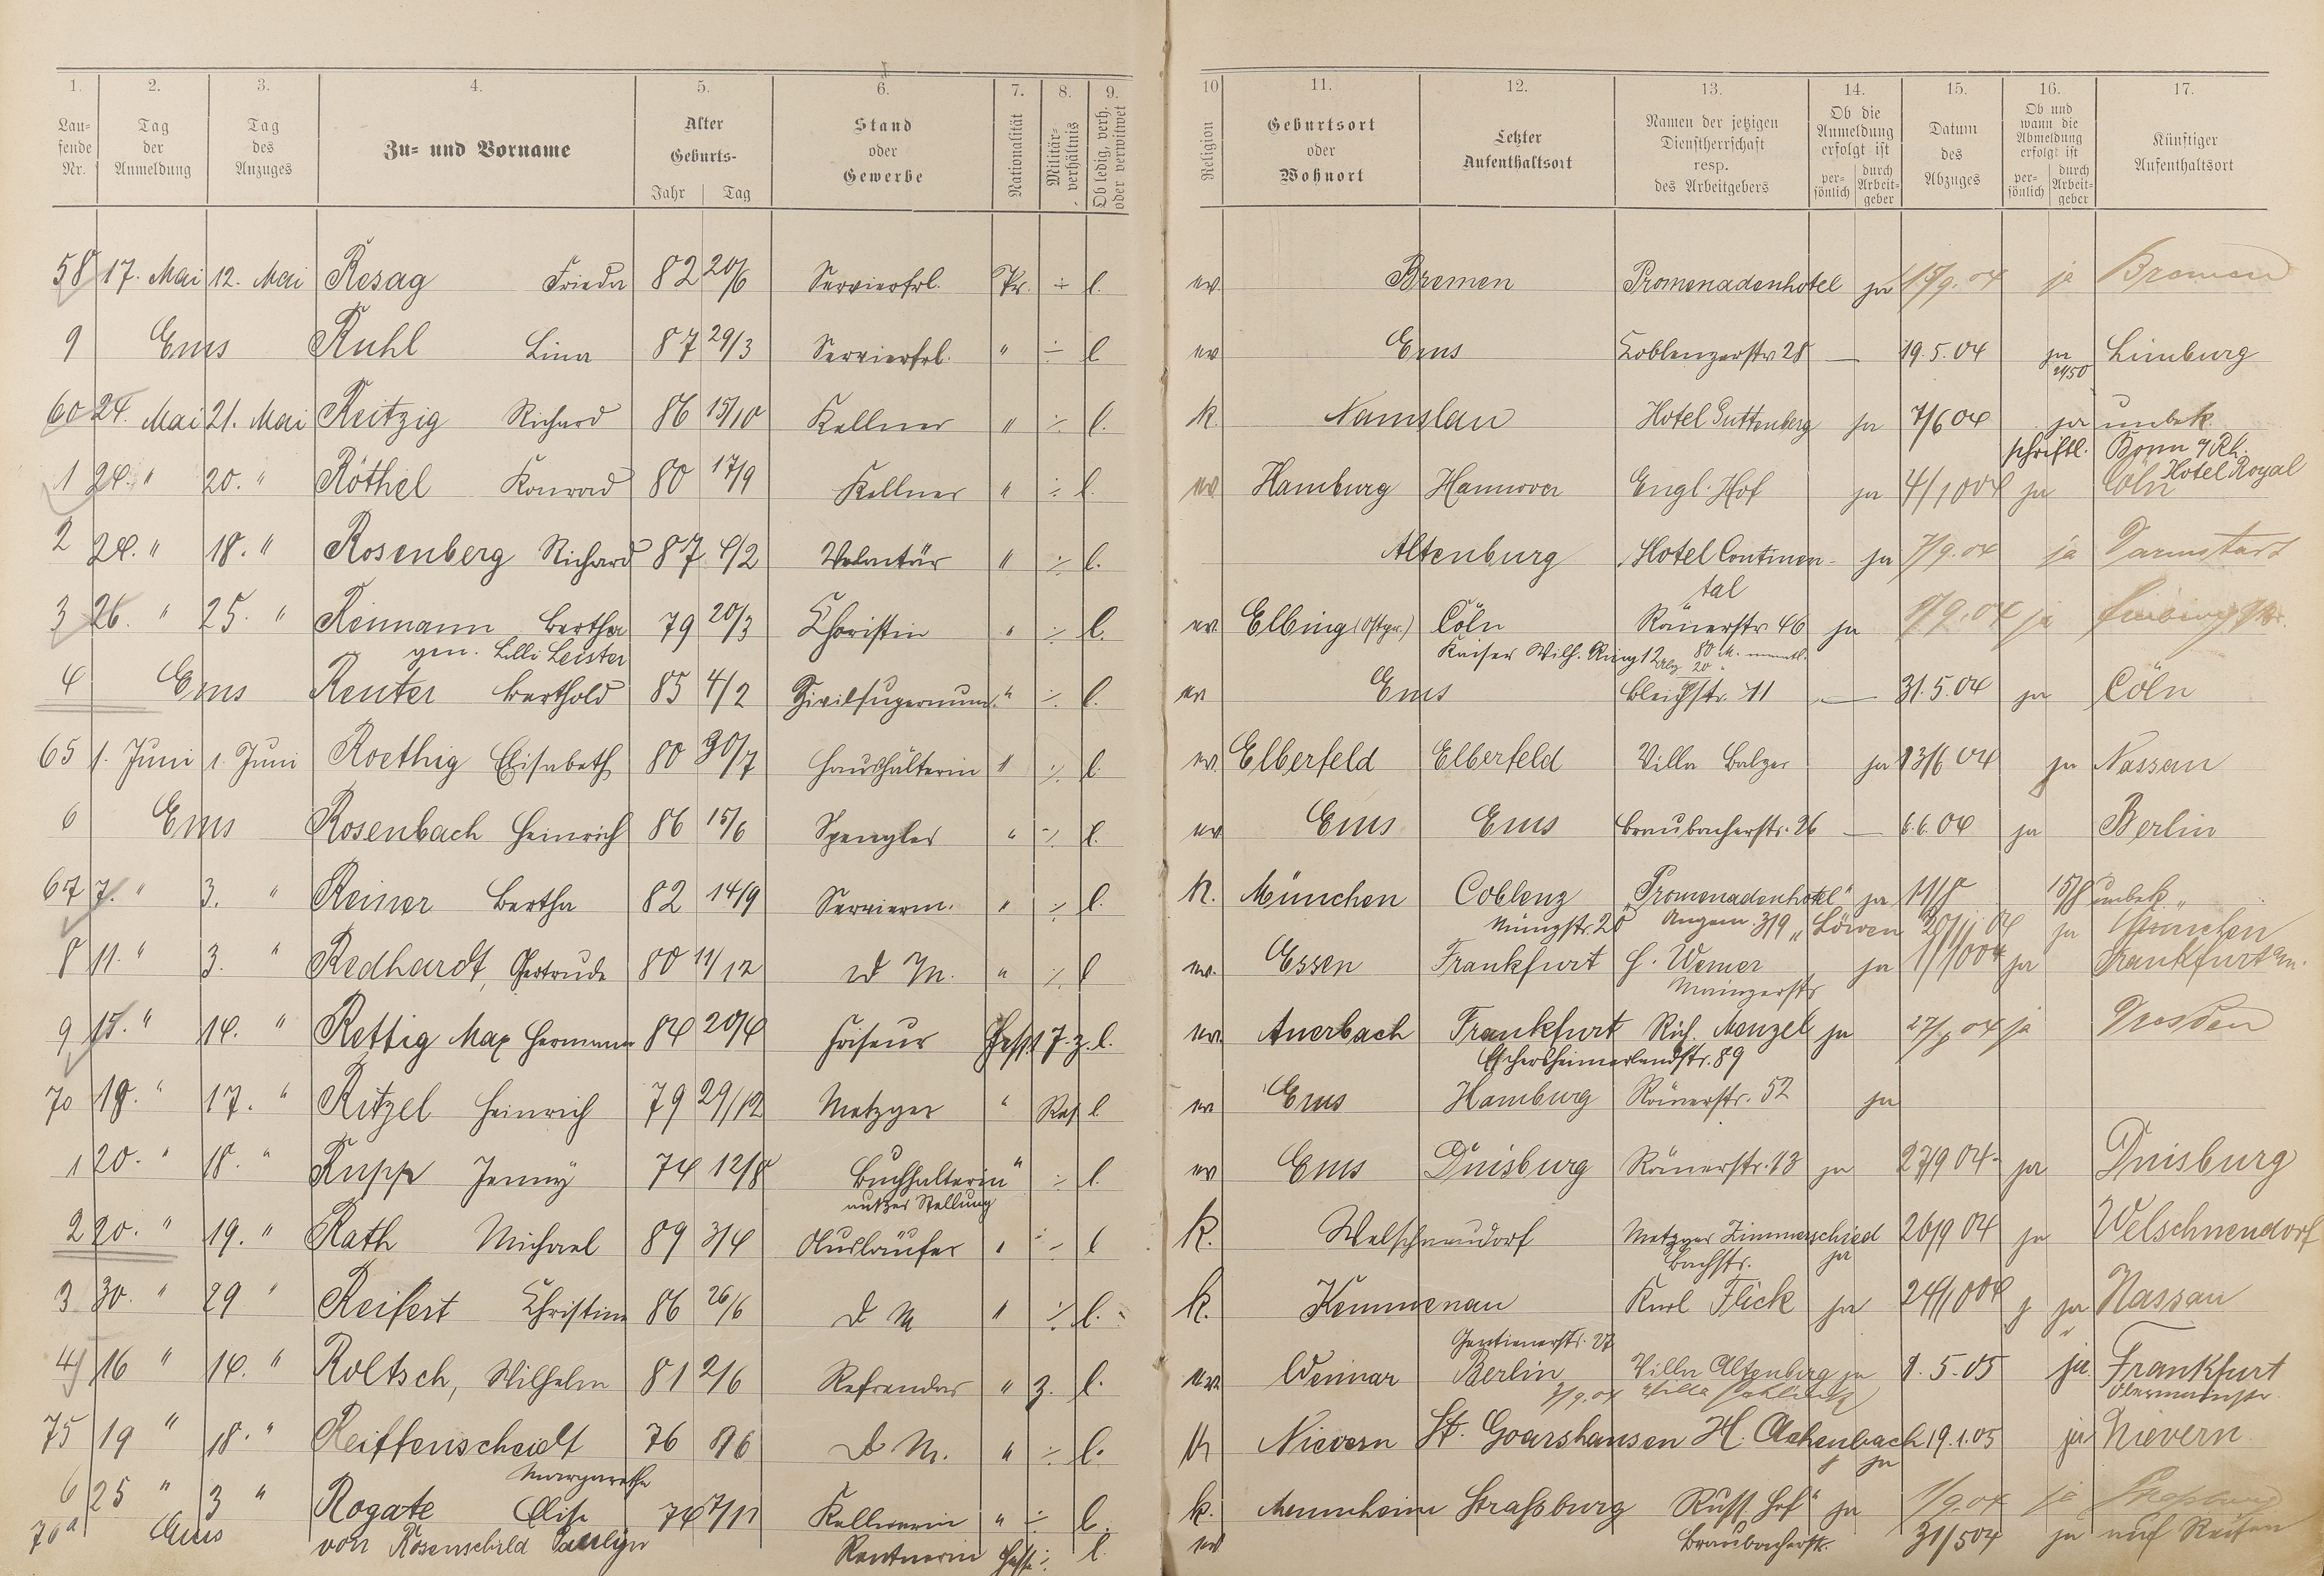 1. 2. 3. 4. 5. 6. 7. 8. 9. 10 11. 12. 13. 14. 15. 16. 17.
Laufende Nr. Tag der Anmeldung Tag des Anzuges Zu- und Vorname Alter Geburts- Jahr Tag Stand oder Gewerbe Nationalität Militär-verhältnis Ob ledig, verh. oder verwitwet Religion Geburtsort oder Wohnort Letzter Aufenthaltsort Namen der jetzigen Dienstherrschaft resp. des Arbeitgebers Ob die Anmeldung erfolgt ist per-sönlich durch Arbeit-geber Datum des Abzuges Ob und wann die Abmeldung erfolgt ist per-sönlich durch Arbeit-geber Künftiger Aufenthaltsort
58 17. Mai 12. Mai Resag Frieda 82 20/6 Servierfrl. Pr. ÷ l. ev. Bremen Promenadenhotel ja 15/9.04 ja Bremen
9 Ems Ruhl Lina 87 29/3 Servierfrl. " ÷ l ev Ems Coblenzerstr 28 — 19.5.04 ja Limburg
60 24. Mai 21. Mai Reitzig Richard 86 15/10 Kellner " ÷ l. k. Namslau Hotel Guttenberg ja 7/6 04 ja unbek.
schriftl. Bonn a/Rh.
Hotel Royal
1 24. " 20. " Röthel Konrad 80 17/9 Kellner " ÷ l. ev. Hamburg Hannover Engl. Hof ja 4/10 04 ja Cöln
2 24. " 18. " Rosenberg Richard 87 4/2 Volontär " ÷ l. Altenburg Hotel Continen- ja 7/9.04 ja Darmstadt
tal
3 26. " 25. " Reimann Bertha 79 20/3 Choristin " ÷ l. ev. Elbing (Ostpr.) Cöln Römerstr 46 ja 9.04 ja
gen. Lilli Leister Kaiser Wilh. Ring 12 80 M. monatl.
4 Ems Reuter Berthold 85 4/2 Zivilsupernum. " ÷ l. ev Ems Bleichstr. 11 — 31.5.04 ja Cöln
65 1. Juni 1. Juni Roethig Elisabeth 80 30/7 Haushälterin " ÷ l. ev. Elberfeld Elberfeld Villa Balzer ja 13/6 04 ja Nassau
6 Ems Rosenbach Heinrich 86 15/6 Spengler " ÷ l. ev Ems Ems Braubacherstr. 26 — 6.6.04 ja Berlin
67 7. " 3. " Reiner Bertha 82 14/9 Servierm. " ÷ l. k. München Coblenz "Promenadenhotel" ja 11/8 15/8 unbek.
Münzstr. 20 Angem. 3/9 "Löwen ja München
8 11. " 3. " Redhardt, Gertrude 80 11/12 D M. " ÷ l ev. Essen Frankfurt H. Werner ja 1/10 04 ja Frankfurt a/M.
Mainzerstr
9 15. " 14. " Rettig Max Hermann 84 20/4 Friseur Hess. 1 7. z. l. ev. Auerbach Frankfurt Rich. Menzel ja 27/ 04 ja Dresden
Eschersheimerlandstr. 89
70 19. " 17. " Ritzel Heinrich 79 29/12 Metzger " Res l ev Ems Hamburg Römerstr. 52 ja
1 20. " 18. " Rupp Jenny 74 12/8 Buchhalterin " ÷ l. ev Ems Duisburg Römerstr. 13 ja 27/9 04 ja Duisburg
außer Stellung
2 20. " 19. " Rath Michael 89 3/4 Ausläufer " ÷ l k. Welschneudorf Metzger Zimmerschied 26/9 04 ja Welschneudorf
Bachstr. ja
3 30. " 29 " Reifert Christine 86 26/6 D M " ÷ l. k. Kemmenau Karl Flick ja 24/10 04 ja Nassau
Genthinerstr. 27
4 16 " 14. " Roltsch, Wilhelm 81 2/6 Refrendar " z. l. ev. Weimar Berlin Villa Altenberg ja 9.5.05 ja Frankfurt
7/9.04 Villa
75 19 " 18. " Reiffenscheidt 76 8/6 D M. " ÷ l. k Nievern St. Goarshausen H. Achenbach 19.1.05 ja Nievern
Margarethe ja
6 25 " 3 " Rogate Elise 74 7/11 Kellnerin " ÷ l. k. Mannheim Straßburg Russ. Hof" ja 1/9.04 ja Straßburg
76a Ems von Rosenschild Paulyn Rentnerin Hess. ÷ l. ev Braubacherstr. 31/5 04 ja auf Reisen